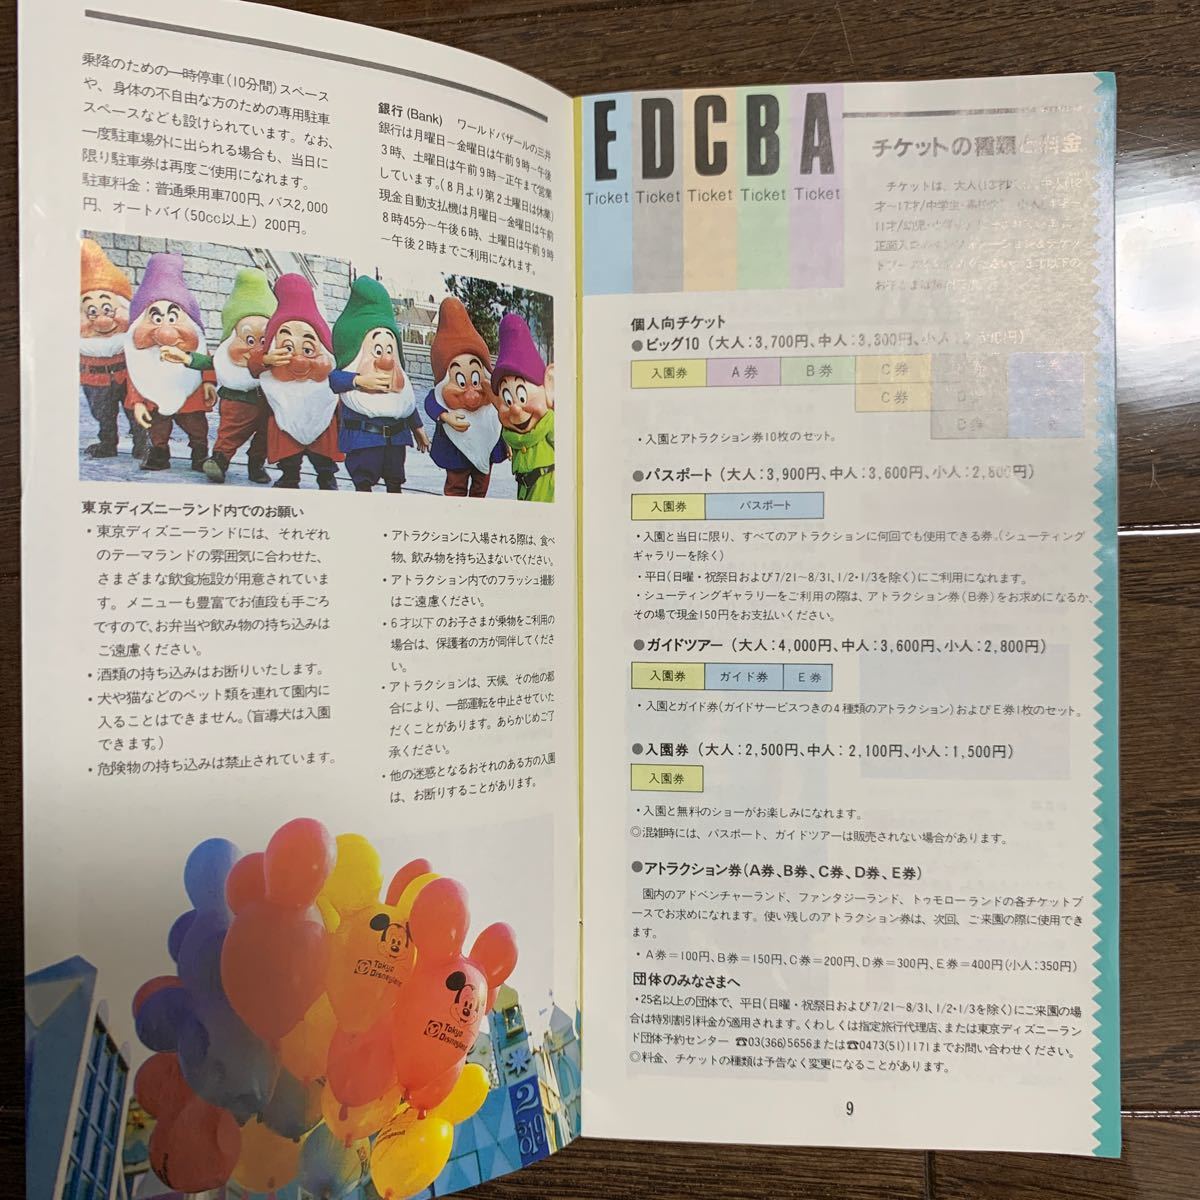 乗降のための一時停車(10分間)スペース
や、身体の不自由な方のための専用駐車
スペースなども設けられています。なお、
一度駐車場外に出られる場合も、当日に
限り駐車券は再度ご使用になれます。
駐車料金：普通乗用車700円、バス2,000
円、オートバイ(50cc以上) 200円。
銀行(Bank) ワールドバザールの三井
銀行は月曜日～金曜日は午前9時～午後
3時、土曜日は午前9時～正午まで営業
しています。(8月より第2土曜日は休業)
現金自動支払機は月曜日～金曜日は午前
8時45分～午後6時、土曜日は午前9時
～午後2時までご利用になれます。
東京ディズニーランド内でのお願い
・東京ディズニーランドには、それぞれ
のテーマランドの雰囲気に合わせた、
さまざまな飲食施設が用意されていま
す。メニューも豊富でお値段も手ごろ
ですので、お弁当や飲み物の持ち込みは
ご遠慮ください。
・酒類の持ち込みはお断りいたします。
・犬や猫などのペット類を連れて園内に
入ることはできません。(盲導犬は入園
できます。)
・危険物の持ち込みは禁止されています。
・アトラクションに入場される際は、食べ
物、飲み物を持ち込まないでください。
・アトラクション内でのフラッシュ撮影
はご遠慮ください。
・6才以下のお子さまが乗物をご利用の
場合は、保護者の方が同伴してくださ
い。
・アトラクションは、天候、その他の都
合により、一部運転を中止させていた
だくことがあります。あらかじめご了
承ください。
・他の迷惑となるおそれのある方の入園
は、お断りすることがあります。
Tokyo
Disneyland
Tokyo
Disneyland
E D C B A
Ticket Ticket Ticket Ticket Ticket
チケットの種類と料金
チケットは、大人
個人向チケット
●ビッグ10 (大人：3,700円、中人：3,300円、小人
入園券 A券 B券 C券
C券 D券
D券
・入園とアトラクション券10枚のセット。
●パスポート (大人：3,900円、中人：3,600円、小人：2,800円)
入園券 パスポート
・入園と当日に限り、すべてのアトラクションに何回でも使用できる券。(シューティング
ギャラリーを除く)
・平日(日曜・祝祭日および7/21～8/31、1/2・1/3を除く)にご利用になれます。
・シューティングギャラリーをご利用の際は、アトラクション券(B券)をお求めになるか、
その場で現金150円をお支払いください。
●ガイドツアー (大人：4,000円、中人：3,600円、小人：2,800円)
入園券 ガイド券 E券
・入園とガイド券(ガイドサービスつきの4種類のアトラクション)およびE券1枚のセット。
●入園券 (大人：2,500円、中人：2,100円、小人：1,500円)
入園券
・入園と無料のショーがお楽しみになれます。
◎混雑時には、パスポート、ガイドツアーは販売されない場合があります。
●アトラクション券(A券、B券、C券、D券、E券)
園内のアドベンチャーランド、ファンタジーランド、トゥモローランドの各チケットブ
ースでお求めになれます。使い残しのアトラクション券は、次回、ご来園の際に使用でき
ます。
・A券＝100円、B券＝150円、C券＝200円、D券＝300円、E券＝400円(小人：350円)
団体のみなさまへ
・25名以上の団体で、平日(日曜・祝祭日および7/21～8/31、1/2・1/3を除く)にご来園の場
合は特別割引料金が適用されます。くわしくは指定旅行代理店、または東京ディズニーラン
ド団体予約センター ☎03(366)5656または☎0473(51)1171までお問い合わせください。
◎料金、チケットの種類は予告なく変更になることがあります。
9